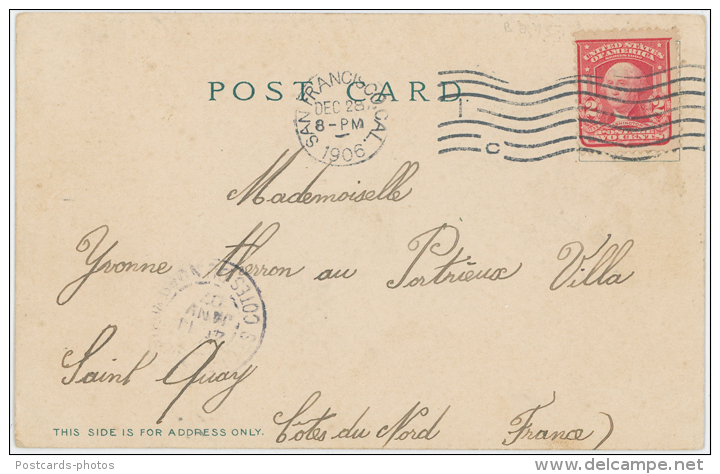 POST CARD
SAN FRANCISCO, CAL.
DEC 28
8-PM
1906
1
C
UNITED STATES
OF AMERICA
2 2
TWO CENTS
Mademoiselle
Yvonne Therron au Portrieux Villa
COTES
Saint Quay
Côtes du Nord France)
THIS SIDE IS FOR ADDRESS ONLY.
Postcards-photos
delcampe.net